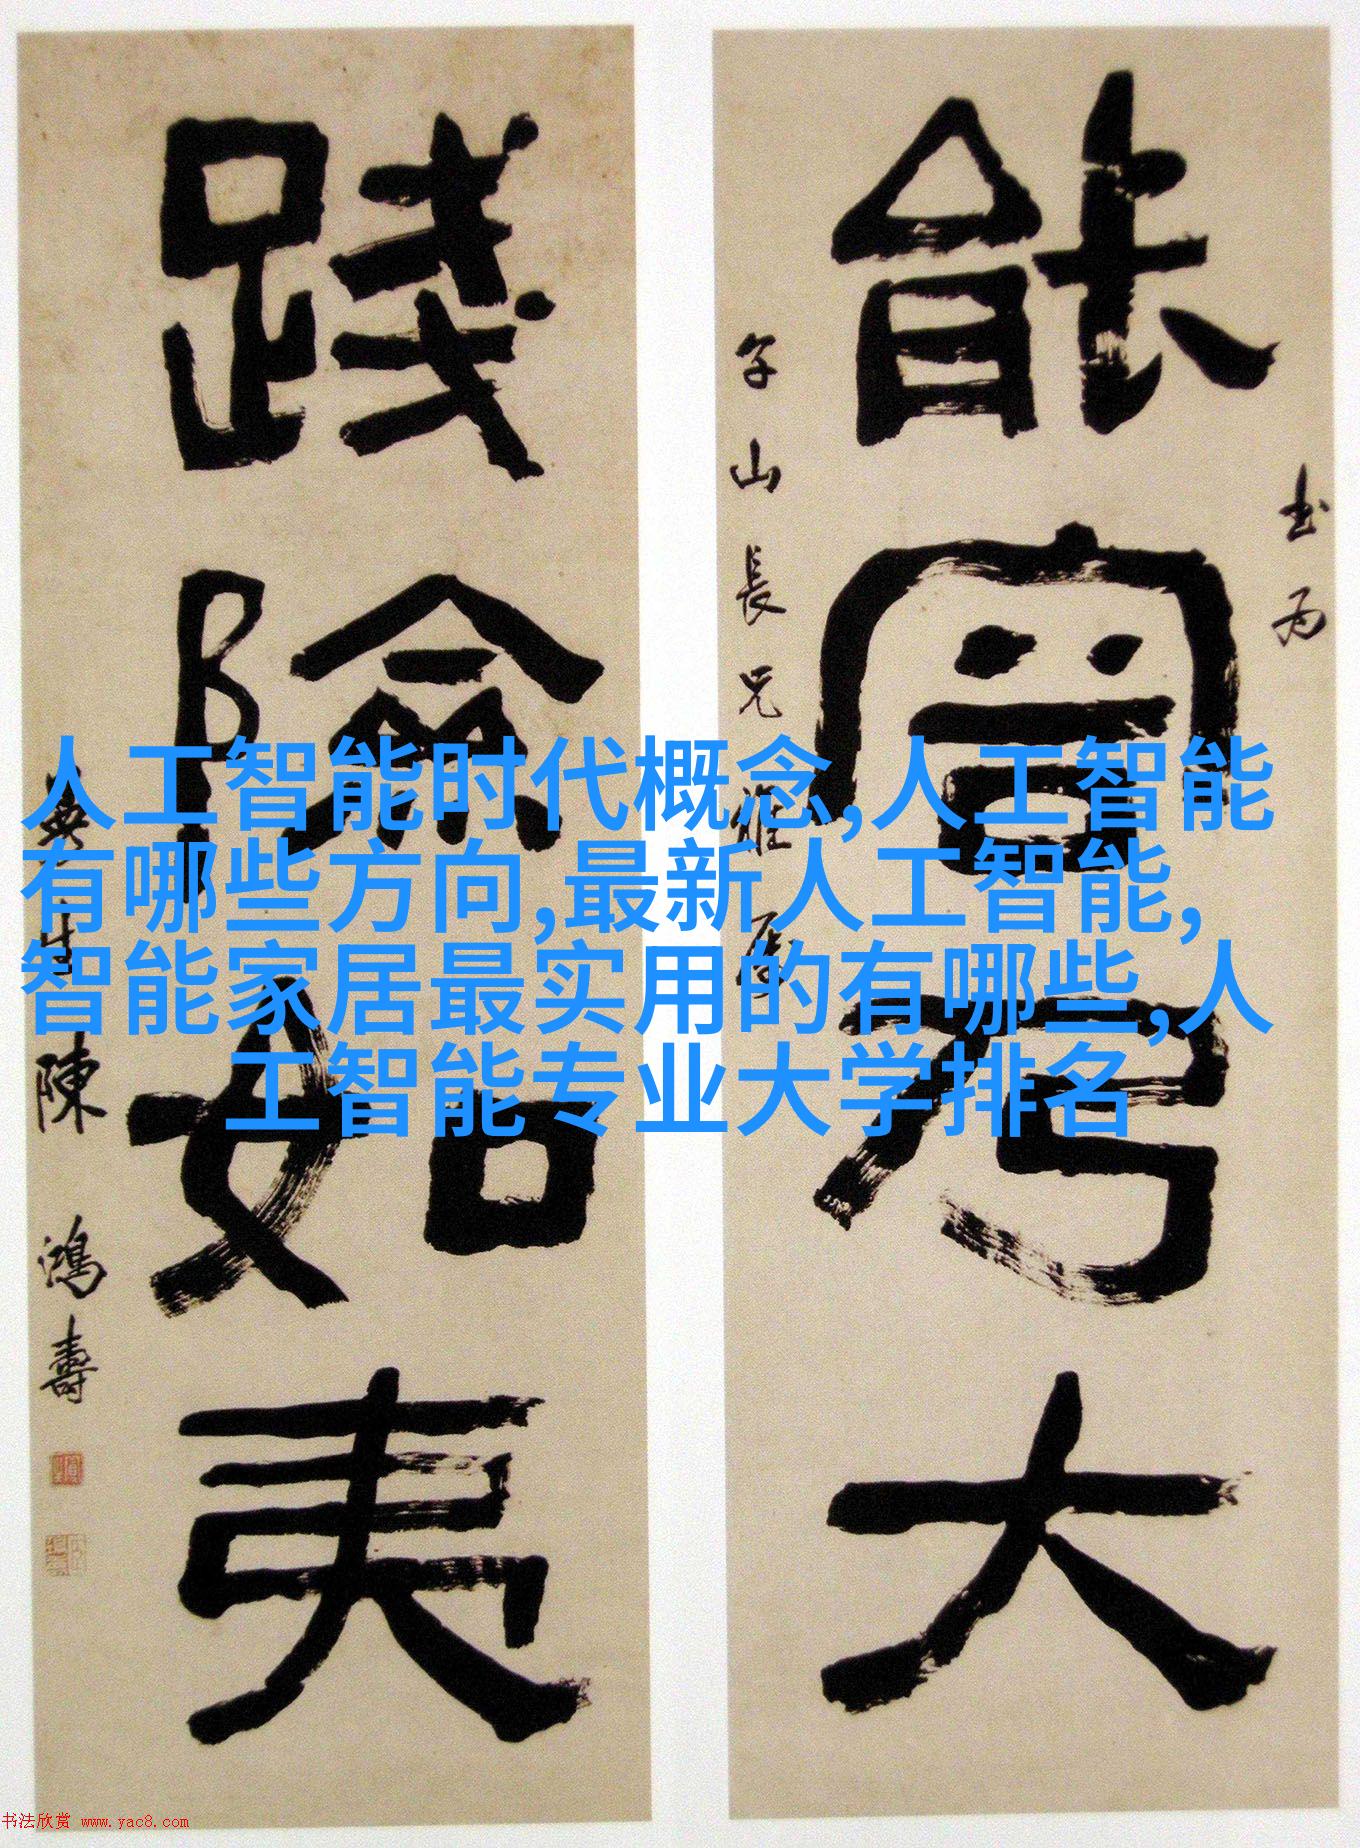 能容乃大
山長兄雅
踐險如夷
曼生陳鴻壽
人工智能时代概念,人工智能
有哪些方向,最新人工智能,
智能家居最实用的有哪些,人
工智能专业大学排名
书法欣赏 www.yac8.com